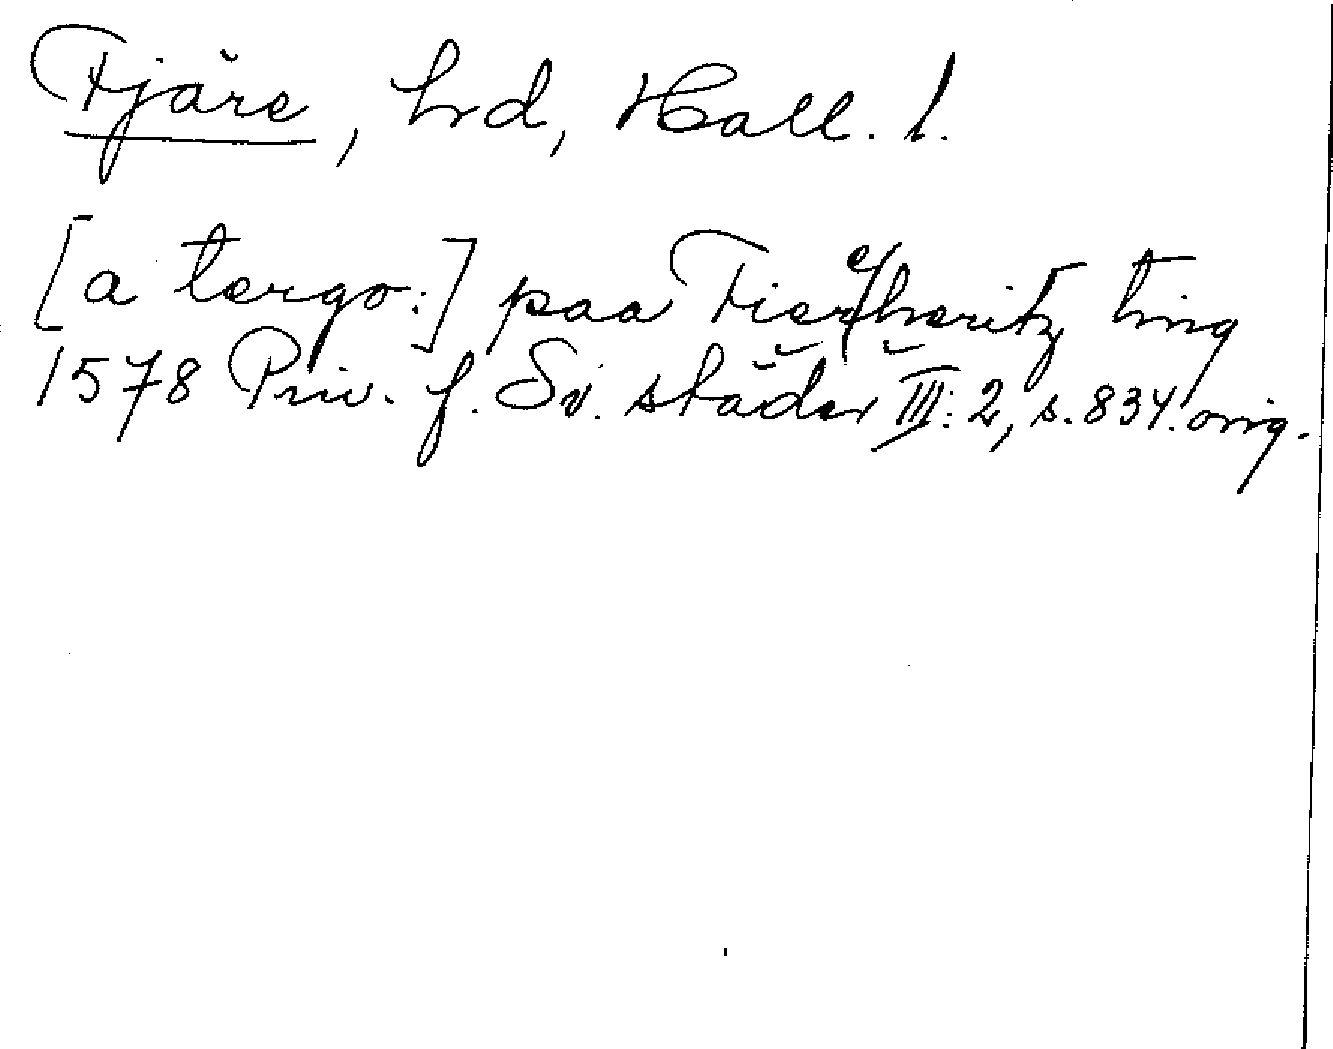 Fjäre, hrd, Hall. l.
[a tergo:] paa Fiereheritz ting
1578 Priv. f. Sv. städer III: 2, s. 834. orig.